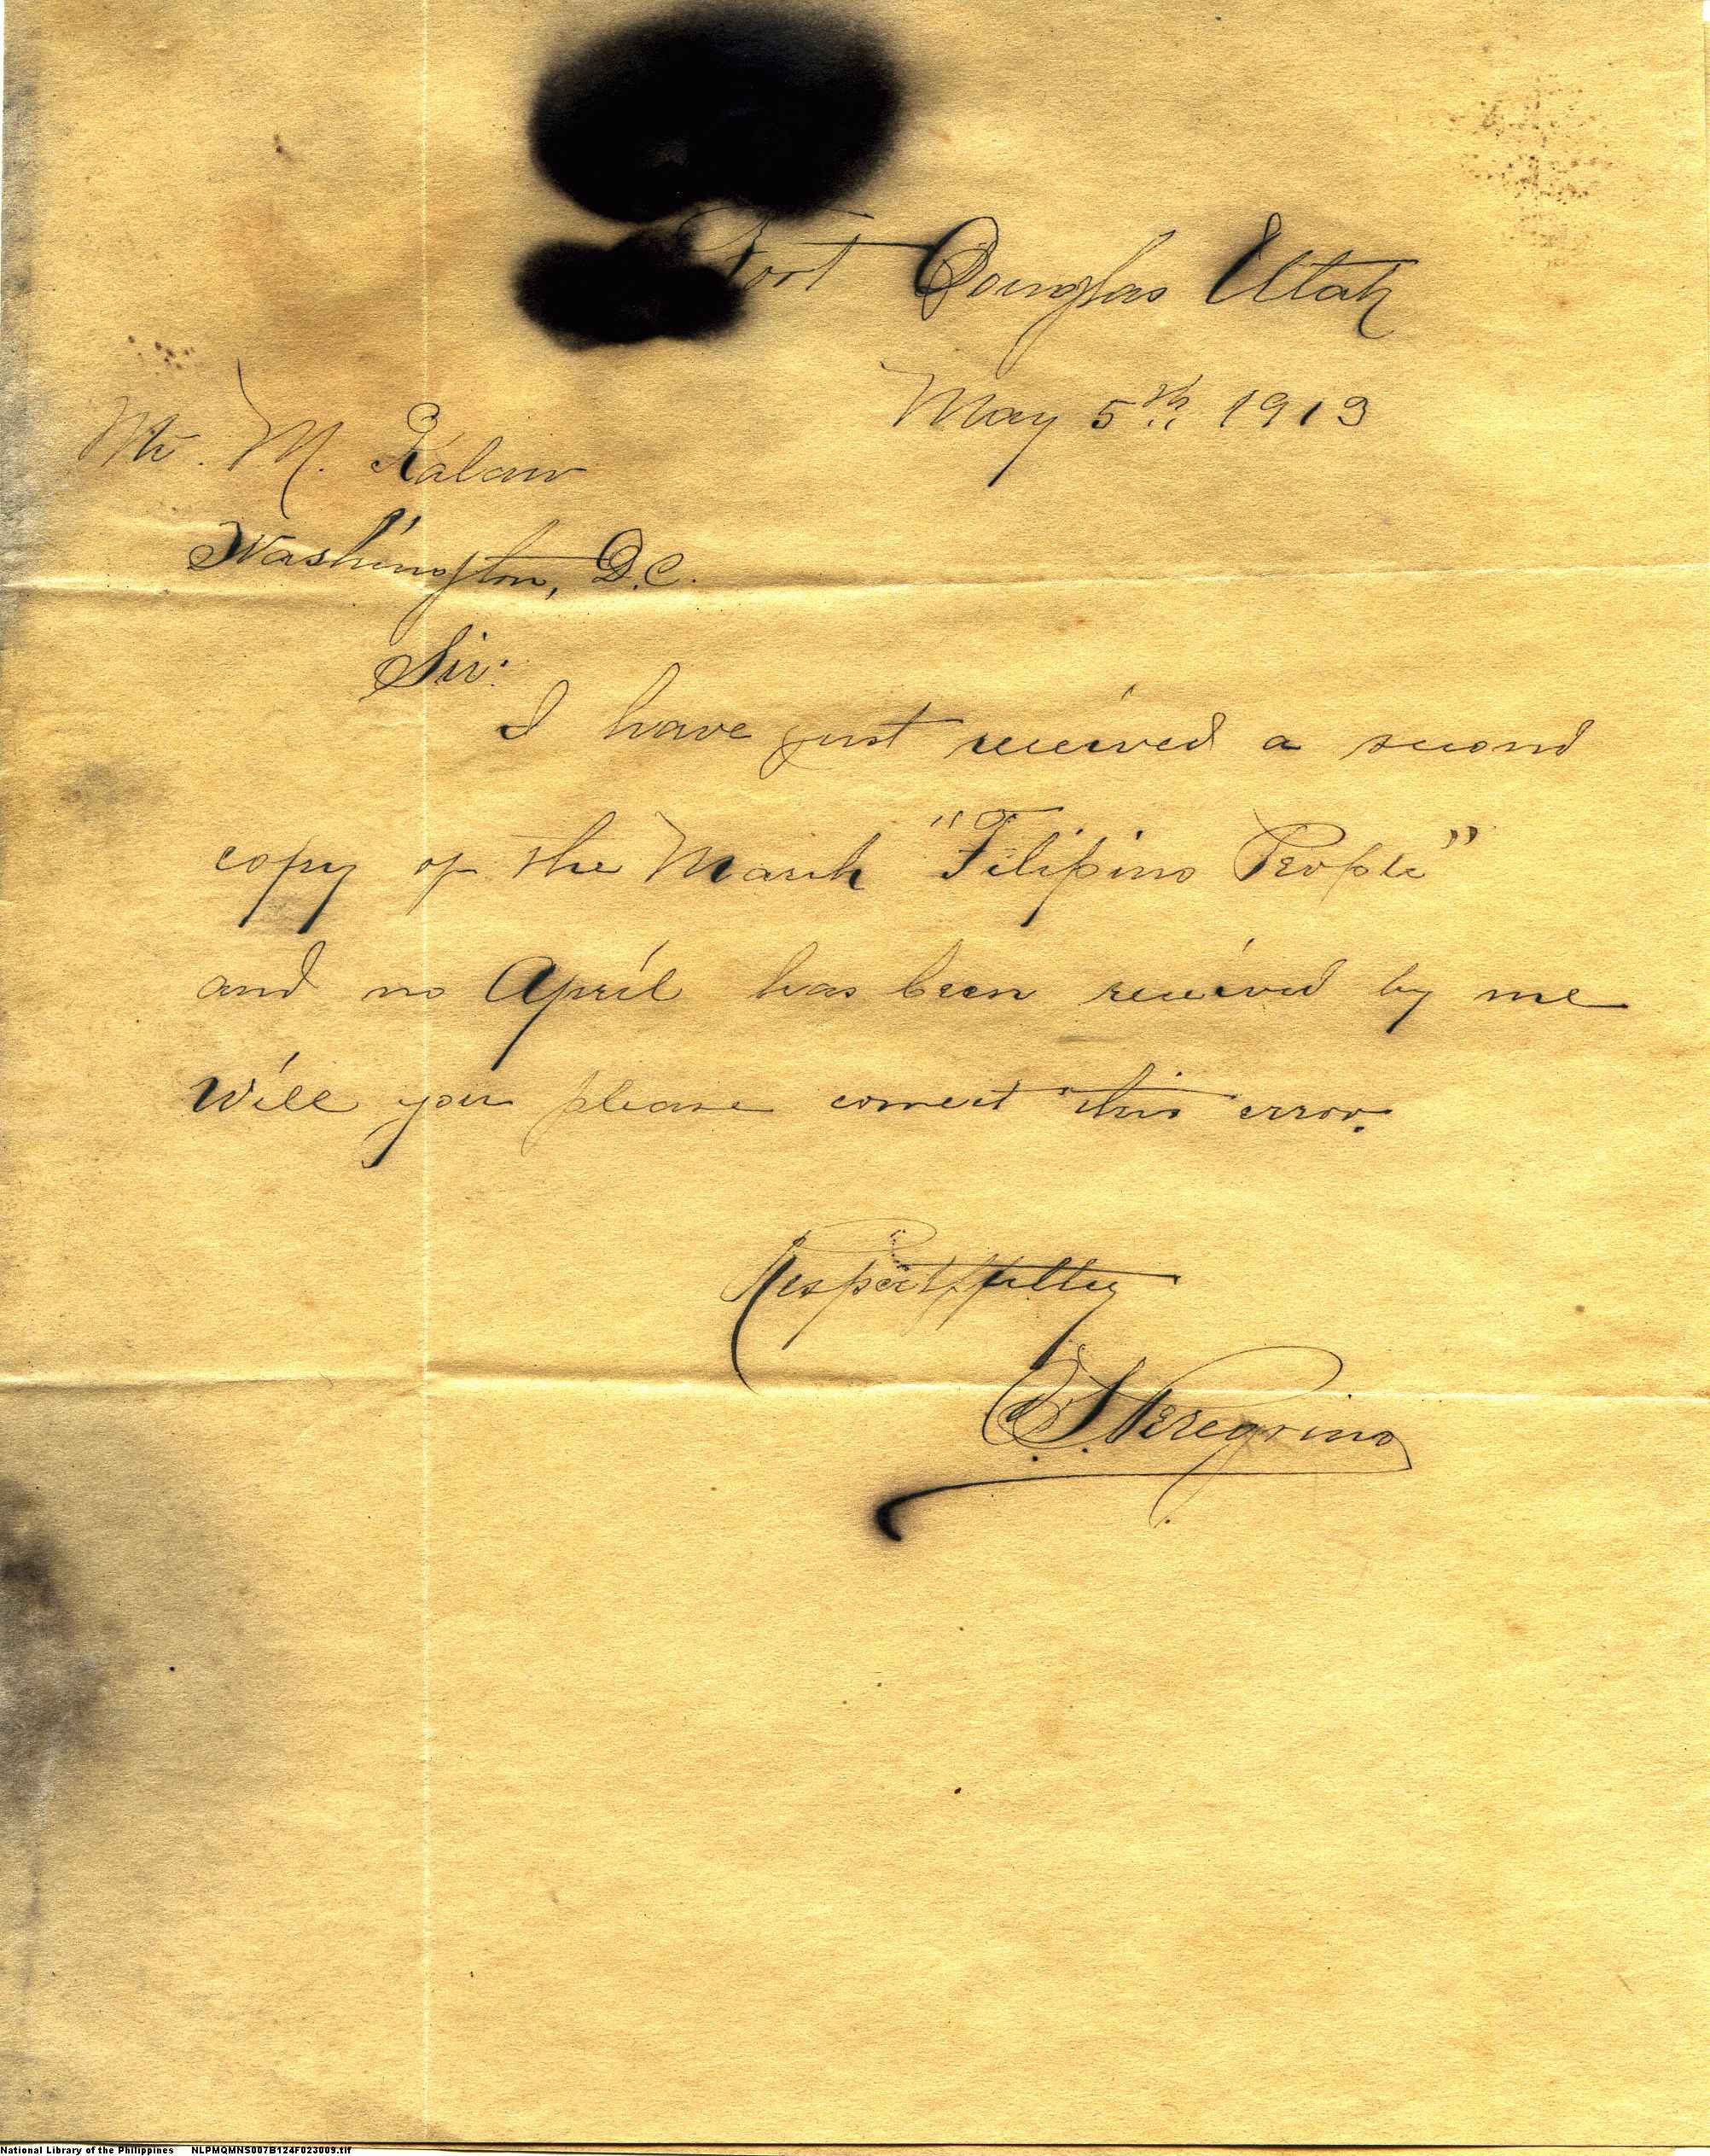 Fort Douglas Utah
May 5th, 1913
Mr. M. Kalaw
Washington, D.C.
Sir:
I have just received a second
copy of the March "Filipino People"
and no April has been received by me
Will you please correct this error.
Respectfully
S. Peregrino
National Library of the Philippines NLPMQMNS007B124F023009.tif